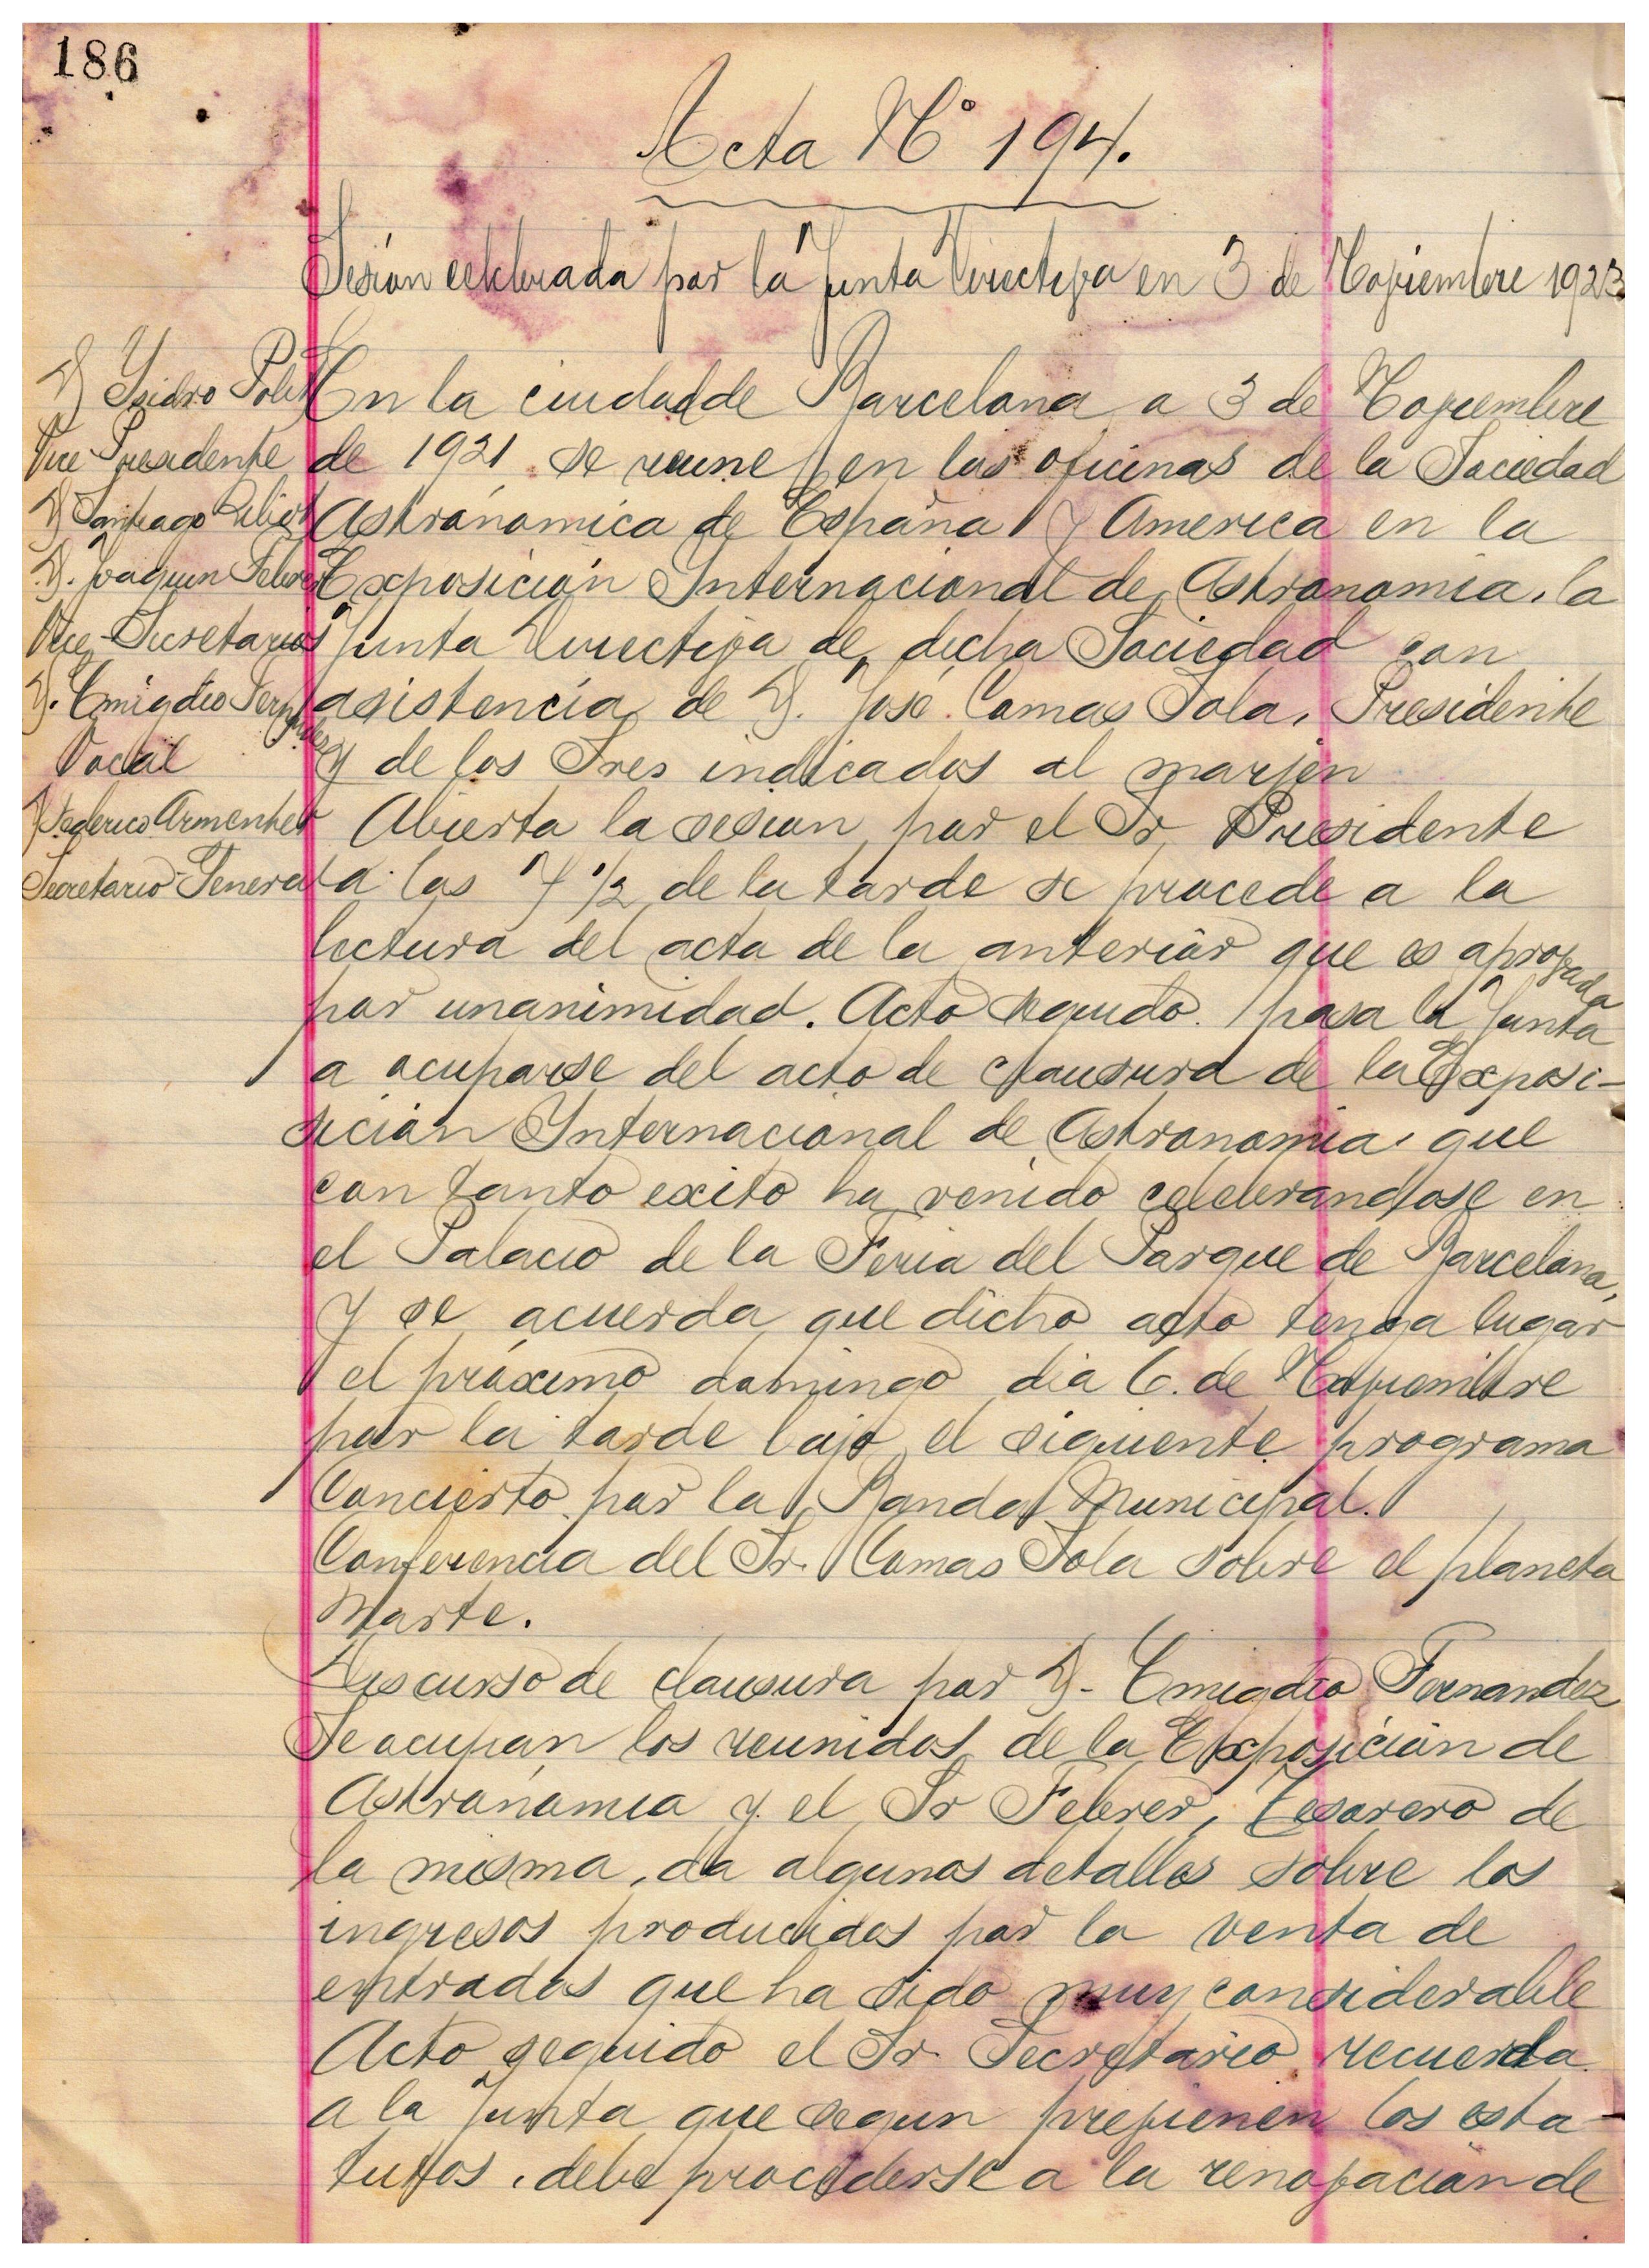 186
Acta Nº 194.
Sesión celebrada por la Junta Directiva en 3 de Noviembre 1923
D Ysidro Polit
Vice Presidente
D Santiago
D. Joaquin Febrer
Vice-Secretarios
D. Emigdio Fernandez
Vocal
D Federico Armenter
Secretario General
En la ciudad de Barcelona a 3 de Noviembre
de 1921 se reune en las oficinas de la Sociedad
Astronómica de España y America en la
Exposición Internacional de Astronomia, la
Junta Directiva de dicha Sociedad con
asistencia de D. José Comas Solá, Presidente
y de los Sres indicados al marjen
Abierta la sesion por el Sr Presidente
a las 7 1/2 de la tarde se procede a la
lectura del acta de la anterior que es aprovada
por unanimidad. Acto seguido pasa la Junta
a ocuparse del acto de clausura de la Exposi-
sición Internacional de Astronomia que
con tanto exito ha venido celebrandose en
el Palacio de la Feria del Parque de Barcelona,
y se acuerda que dicho acto tenga lugar
el próximo domingo dia 6 de Noviembre
por la tarde bajo el siguiente programa
Concierto por la Banda Municipal.
Conferencia del Sr. Comas Solá sobre el planeta
Marte.
Discurso de clausura por D- Emigdio Fernandez
Se ocupan los reunidos de la Exposición de
Astronómia y el Sr Febrer, tesorero de
la misma, da algunos detalles sobre los
ingresos producidos por la venta de
entradas que ha sido muy considerable
Acto seguido el Sr. Secretario recuerda
a la Junta que segun previenen los esta-
tutos, debe procederse a la renovación de